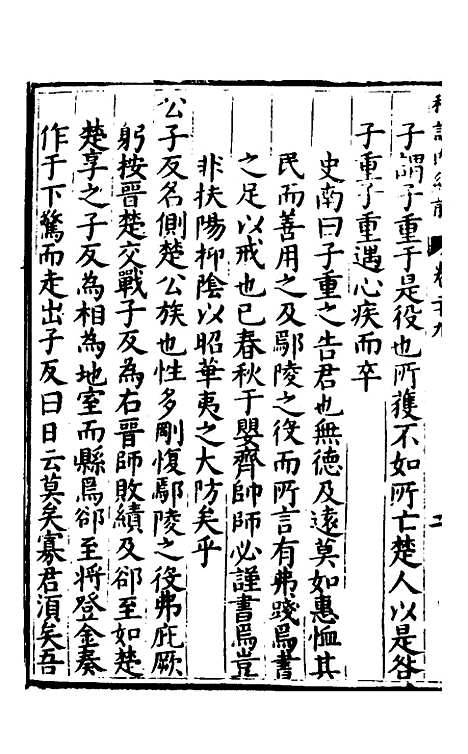 子謂子重于是役也所獲不如所亡楚人以是咎
子重子重遇心疾而卒
史南曰子重之告君也無德及遠莫如惠恤其
民而善用之及鄢陵之役而所言有弗踐焉書
之足以戒也已春秋于嬰齊帥師必謹書焉豈
非扶陽抑陰以昭華夷之大防矣乎
公子反名側楚公族也性多剛愎鄢陵之役弗庇厥
躬按晉楚交戰子反為右晉師敗績及郤至如楚
楚享之子反為相為地室而縣焉郤至將登金奏
作于下驚而走出子反曰日云莫矣寡君湏矣吾